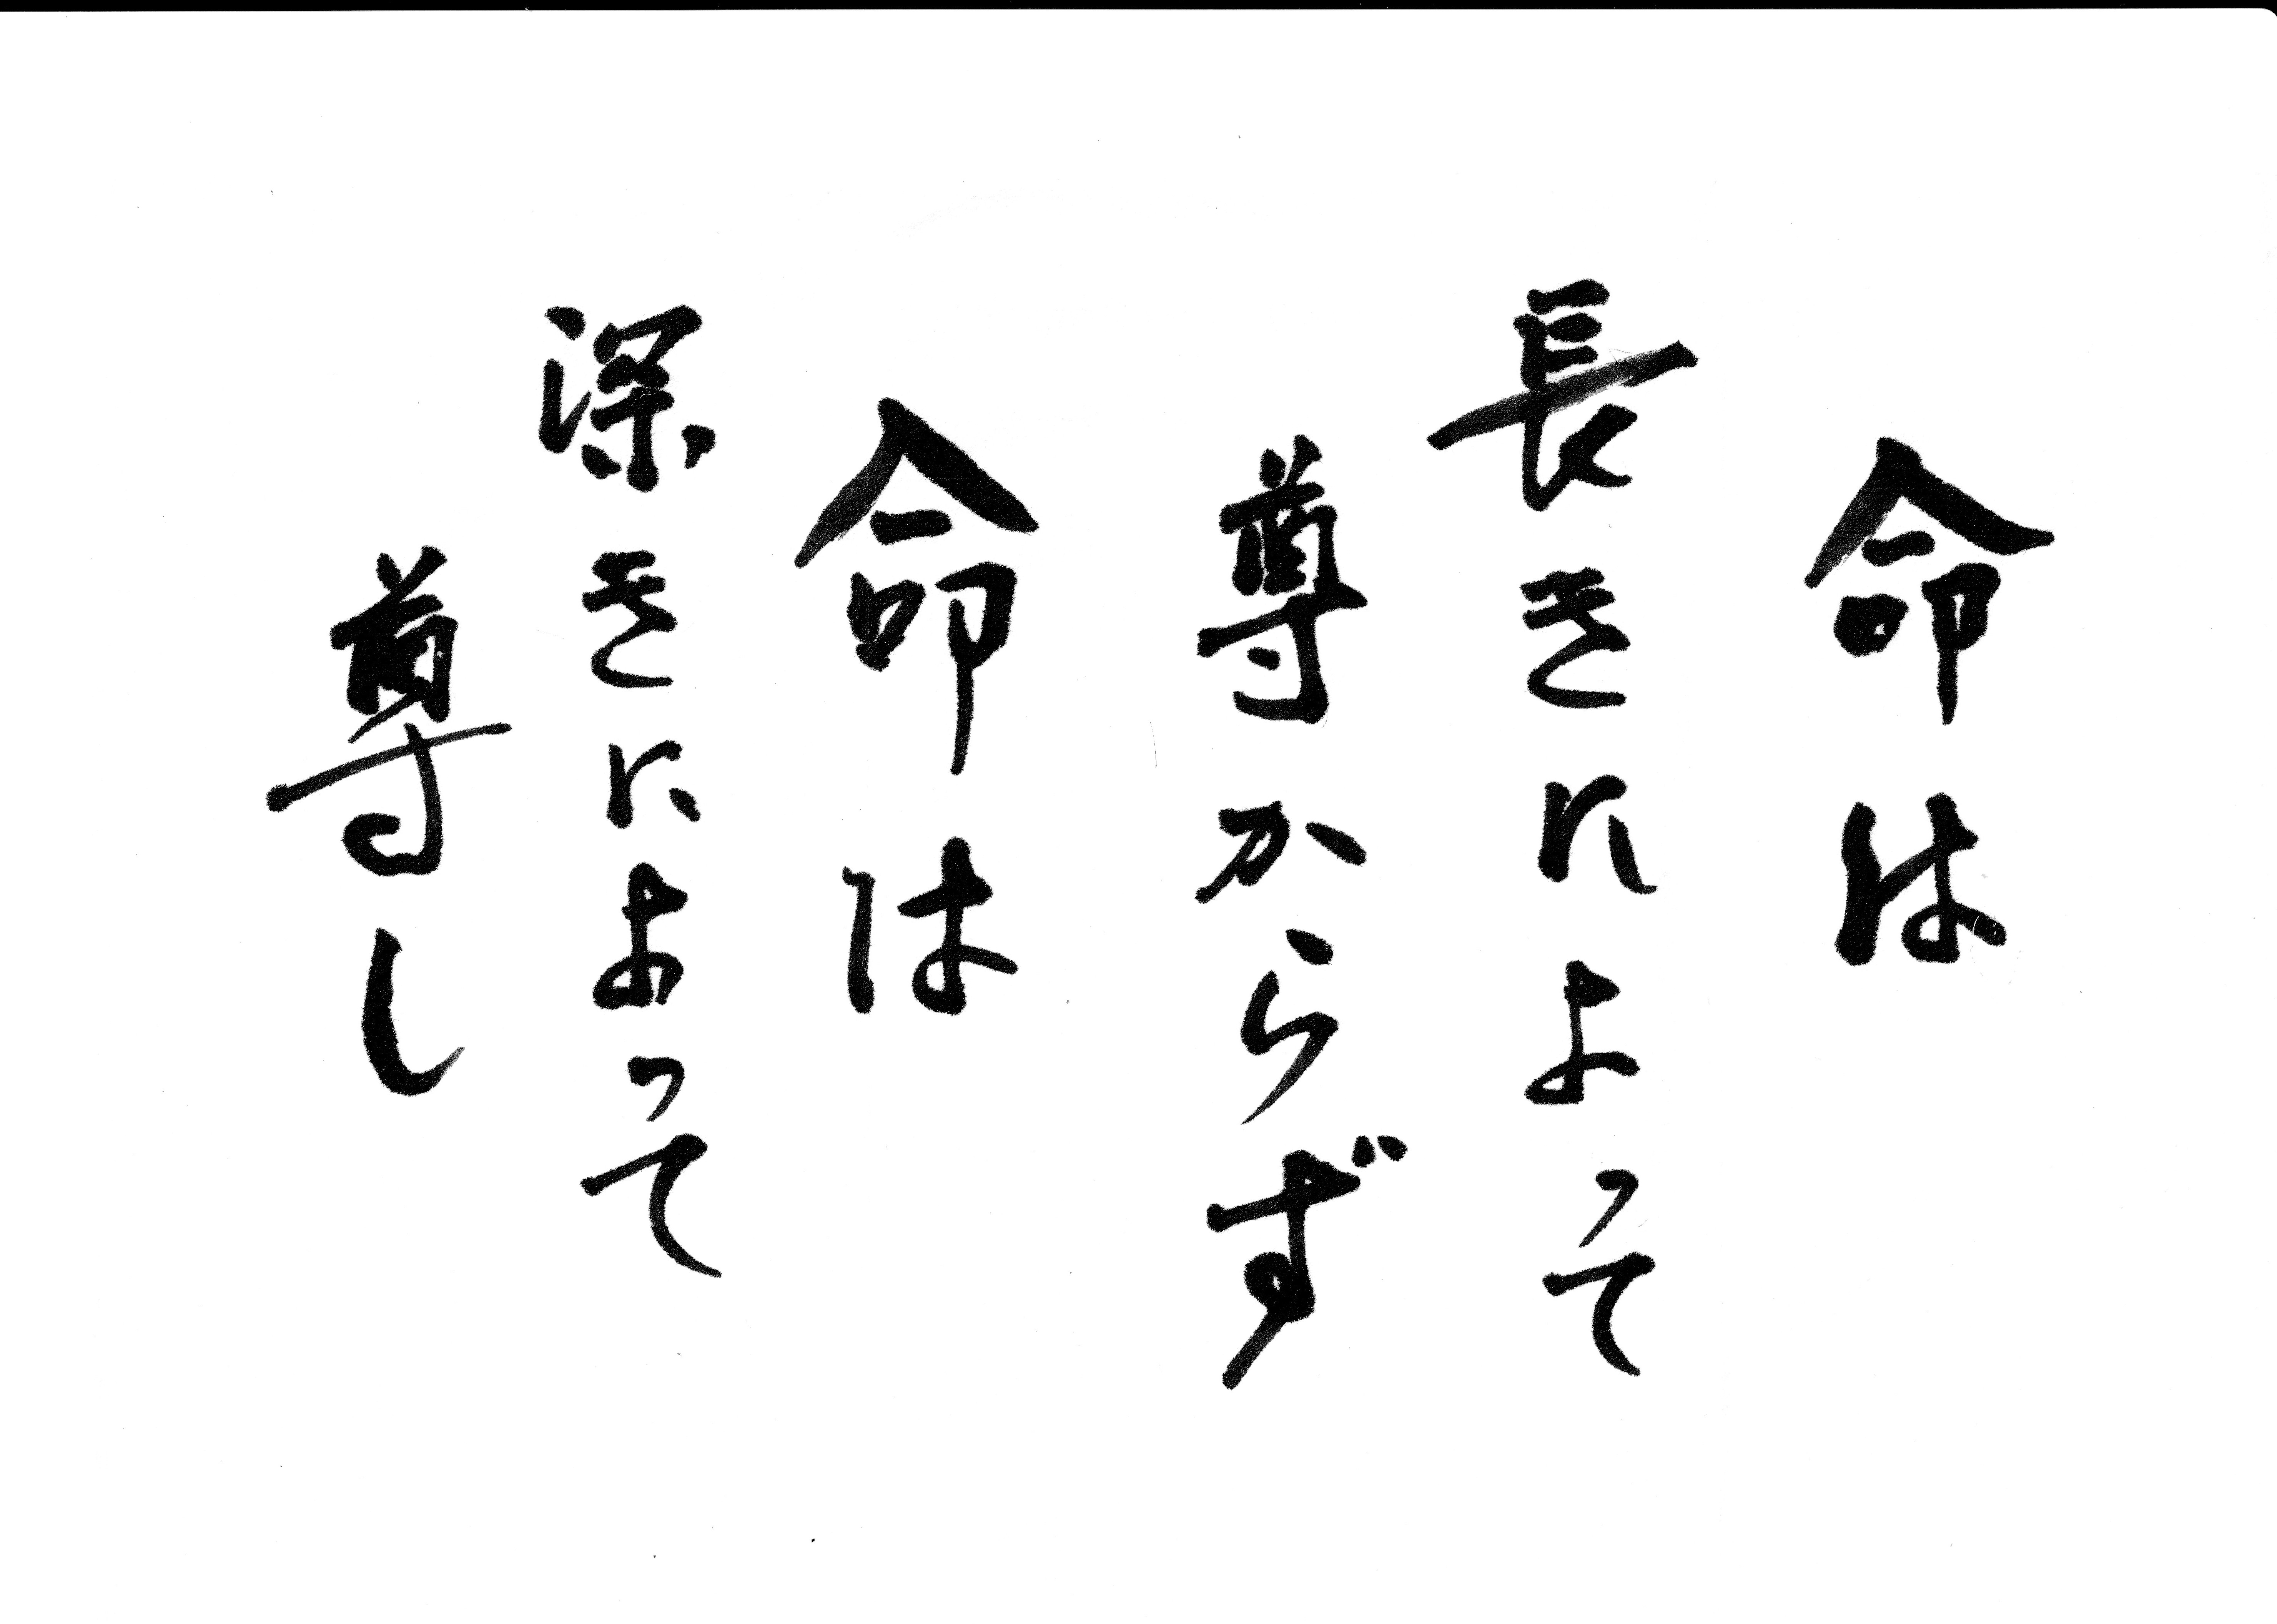 命は
長きによって
尊からず
命は
深きによって
尊し